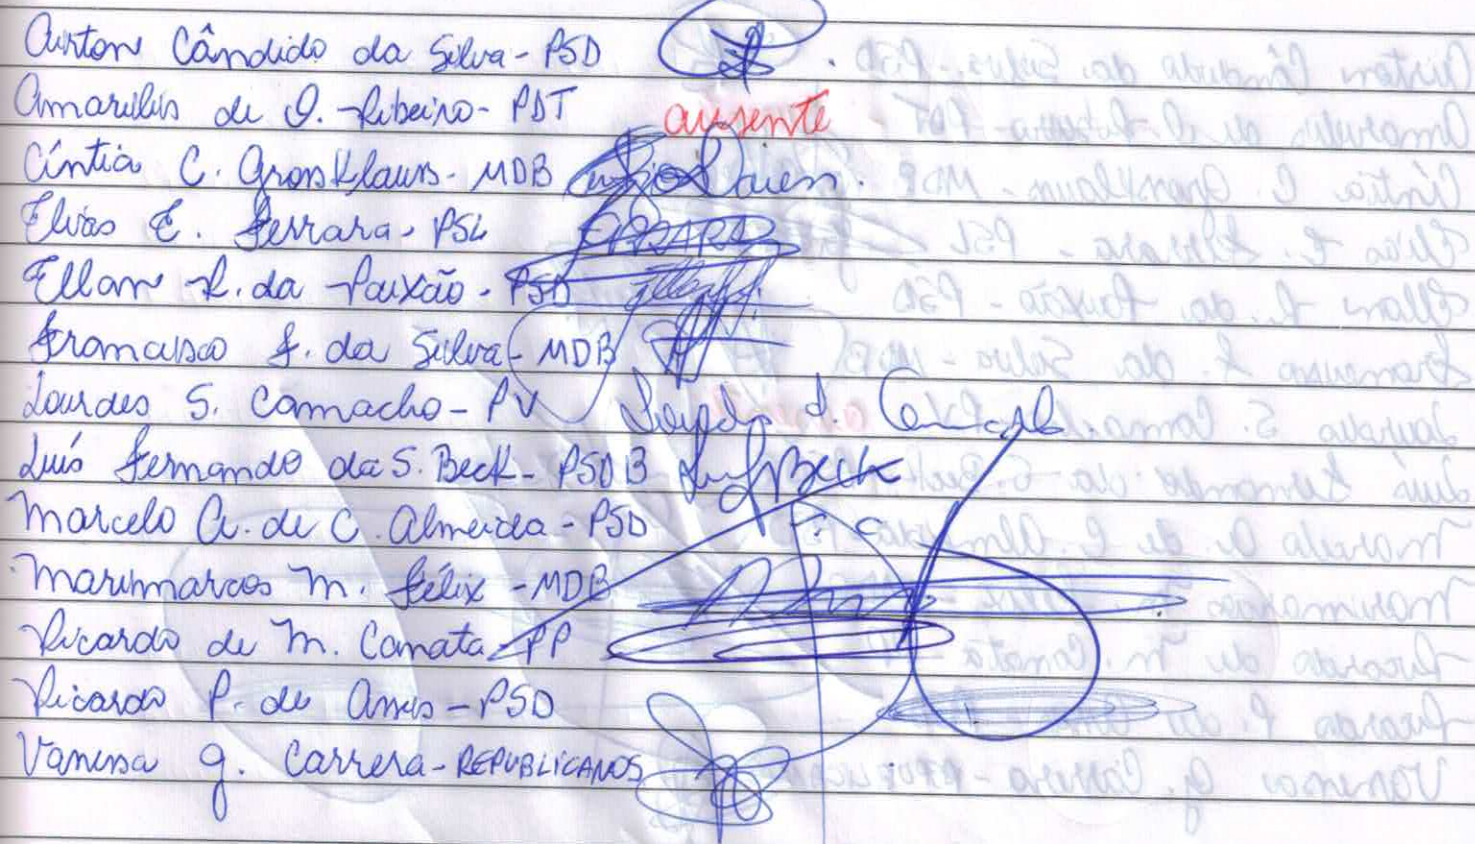 Airton Cândido da Silva - PSD
Amarilis de O. Ribeiro - PDT ausente
Cíntia C. Grosklaus - MDB
Elias E. Ferrara - PSL FERRARA
Ellan R. da Paixão - PSD
Francisco F. da Silva - MDB
Lourdes S. Camacho - PV
Luís Fernando da S. Beck - PSDB Beck
Marcelo A. de C. Almeida - PSD
Marimarcos M. Félix - MDB
Ricardo de M. Camata - PP
Ricardo P. de Assis - PSD
Vanessa G. Carrera - REPUBLICANOS